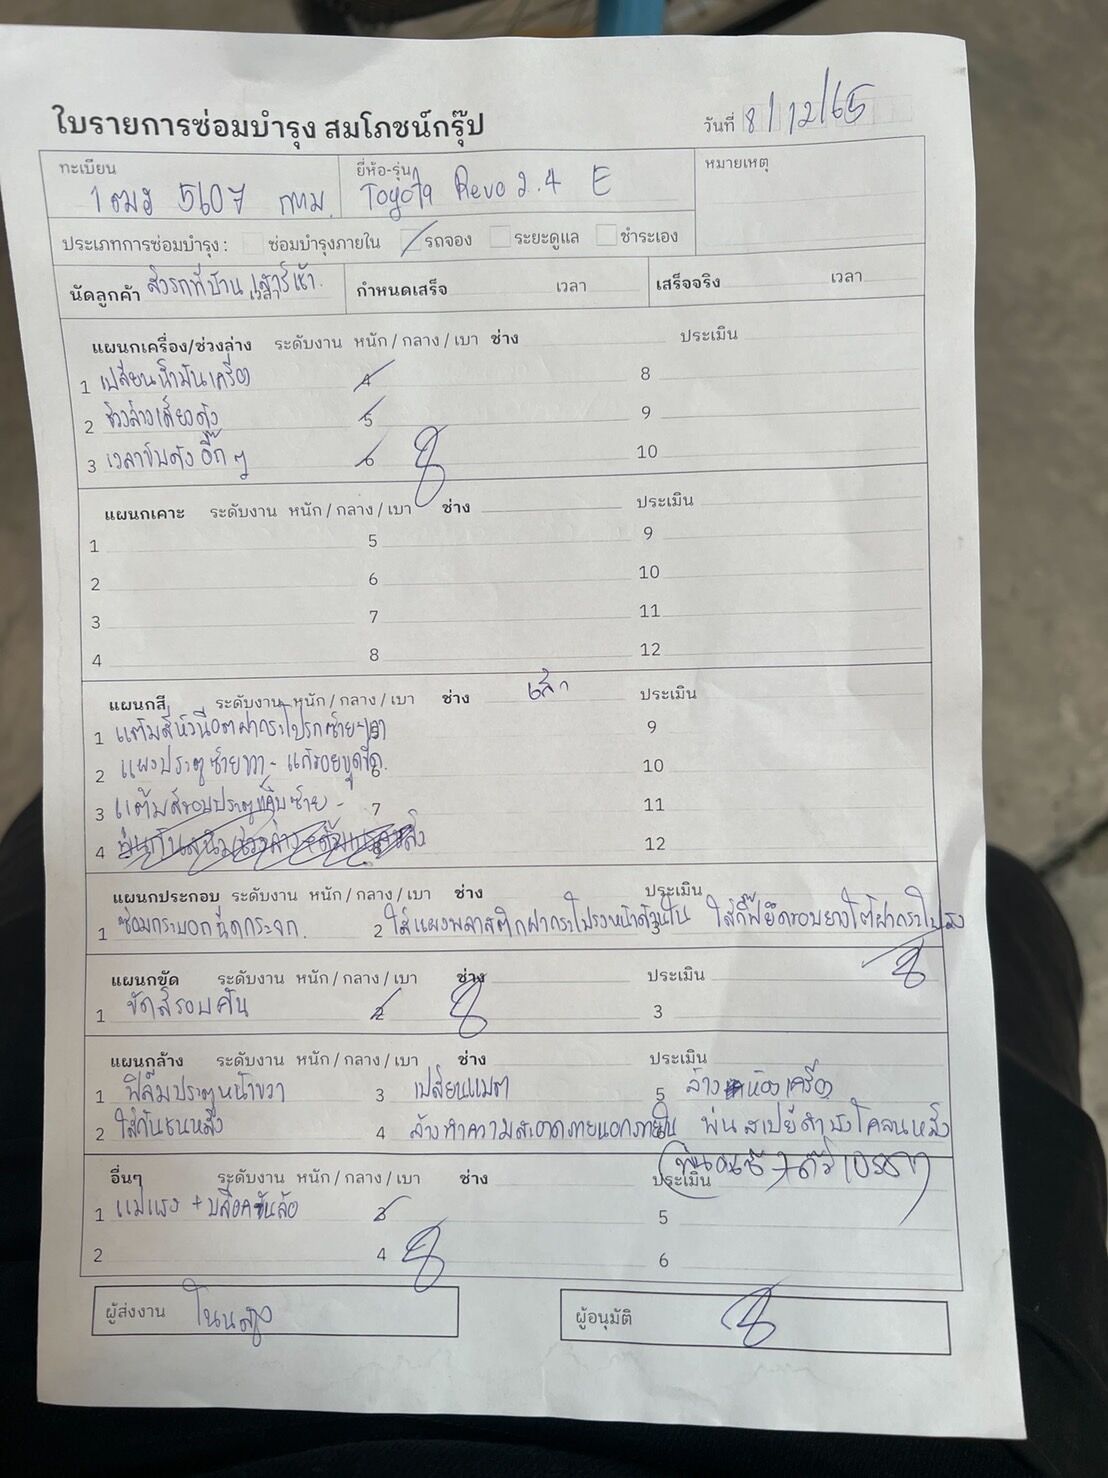 ใบรายการซ่อมบำรุง สมโภชน์กรุ๊ป
วันที่ 8/12/65
ทะเบียน ยี่ห้อ-รุ่น หมายเหตุ
5607 กทม. Toyota Revo 2.4 E
ประเภทการซ่อมบำรุง : ซ่อมบำรุงภายใน รถจอง ระยะดูแล ชำระเอง
นัดลูกค้า ส่งรถที่บ้าน เสาร์เช้า. เวลา กำหนดเสร็จ เวลา เสร็จจริง เวลา
แผนกเครื่อง/ช่วงล่าง ระดับงาน หนัก / กลาง / เบา ช่าง ประเมิน
1 เปลี่ยนน้ำมันเครื่อง 4 8
2 ช่วงล่างเสียงดัง 5 9
3 เวลาขับดัง อี๊ก ๆ 6 10
แผนกเคาะ ระดับงาน หนัก / กลาง / เบา ช่าง ประเมิน
1 5 9
2 6 10
3 7 11
4 8 12
แผนกสี ระดับงาน หนัก / กลาง / เบา ช่าง ประเมิน
1 แต้มสีหัวน็อตฝากระโปรงซ้าย-ขวา 9
2 แผงประตูซ้ายขวา - แก้รอยขูดขีด. 10
3 แต้มสีขอบประตูแค็บซ้าย - 7 11
4 12
แผนกประกอบ ระดับงาน หนัก / กลาง / เบา ช่าง ประเมิน
1 ซ่อมกระบอกฉีดกระจก. 2 ใส่แผงพลาสติกฝากระโปรงหน้าด้านใน 3 ใส่กิ๊ฟยึดขอบยางใต้ฝากระโปรง
แผนกขัด ระดับงาน หนัก / กลาง / เบา ช่าง ประเมิน
1 ขัดสีรอบคัน 2 3
แผนกล้าง ระดับงาน หนัก / กลาง / เบา ช่าง ประเมิน
1 ฟิล์มประตูหน้าขวา 3 เปลี่ยนแบต 5 ล้างห้องเครื่อง
2 ใส่กันชนหลัง 4 ล้างทำความสะอาดภายนอกภายใน พ่นสเปย์ดำบังโคลนหลัง
อื่นๆ ระดับงาน หนัก / กลาง / เบา ช่าง ประเมิน
1 แม่แรง + บล็อคขันล้อ 3 5
2 4 6
ผู้ส่งงาน ผู้อนุมัติ